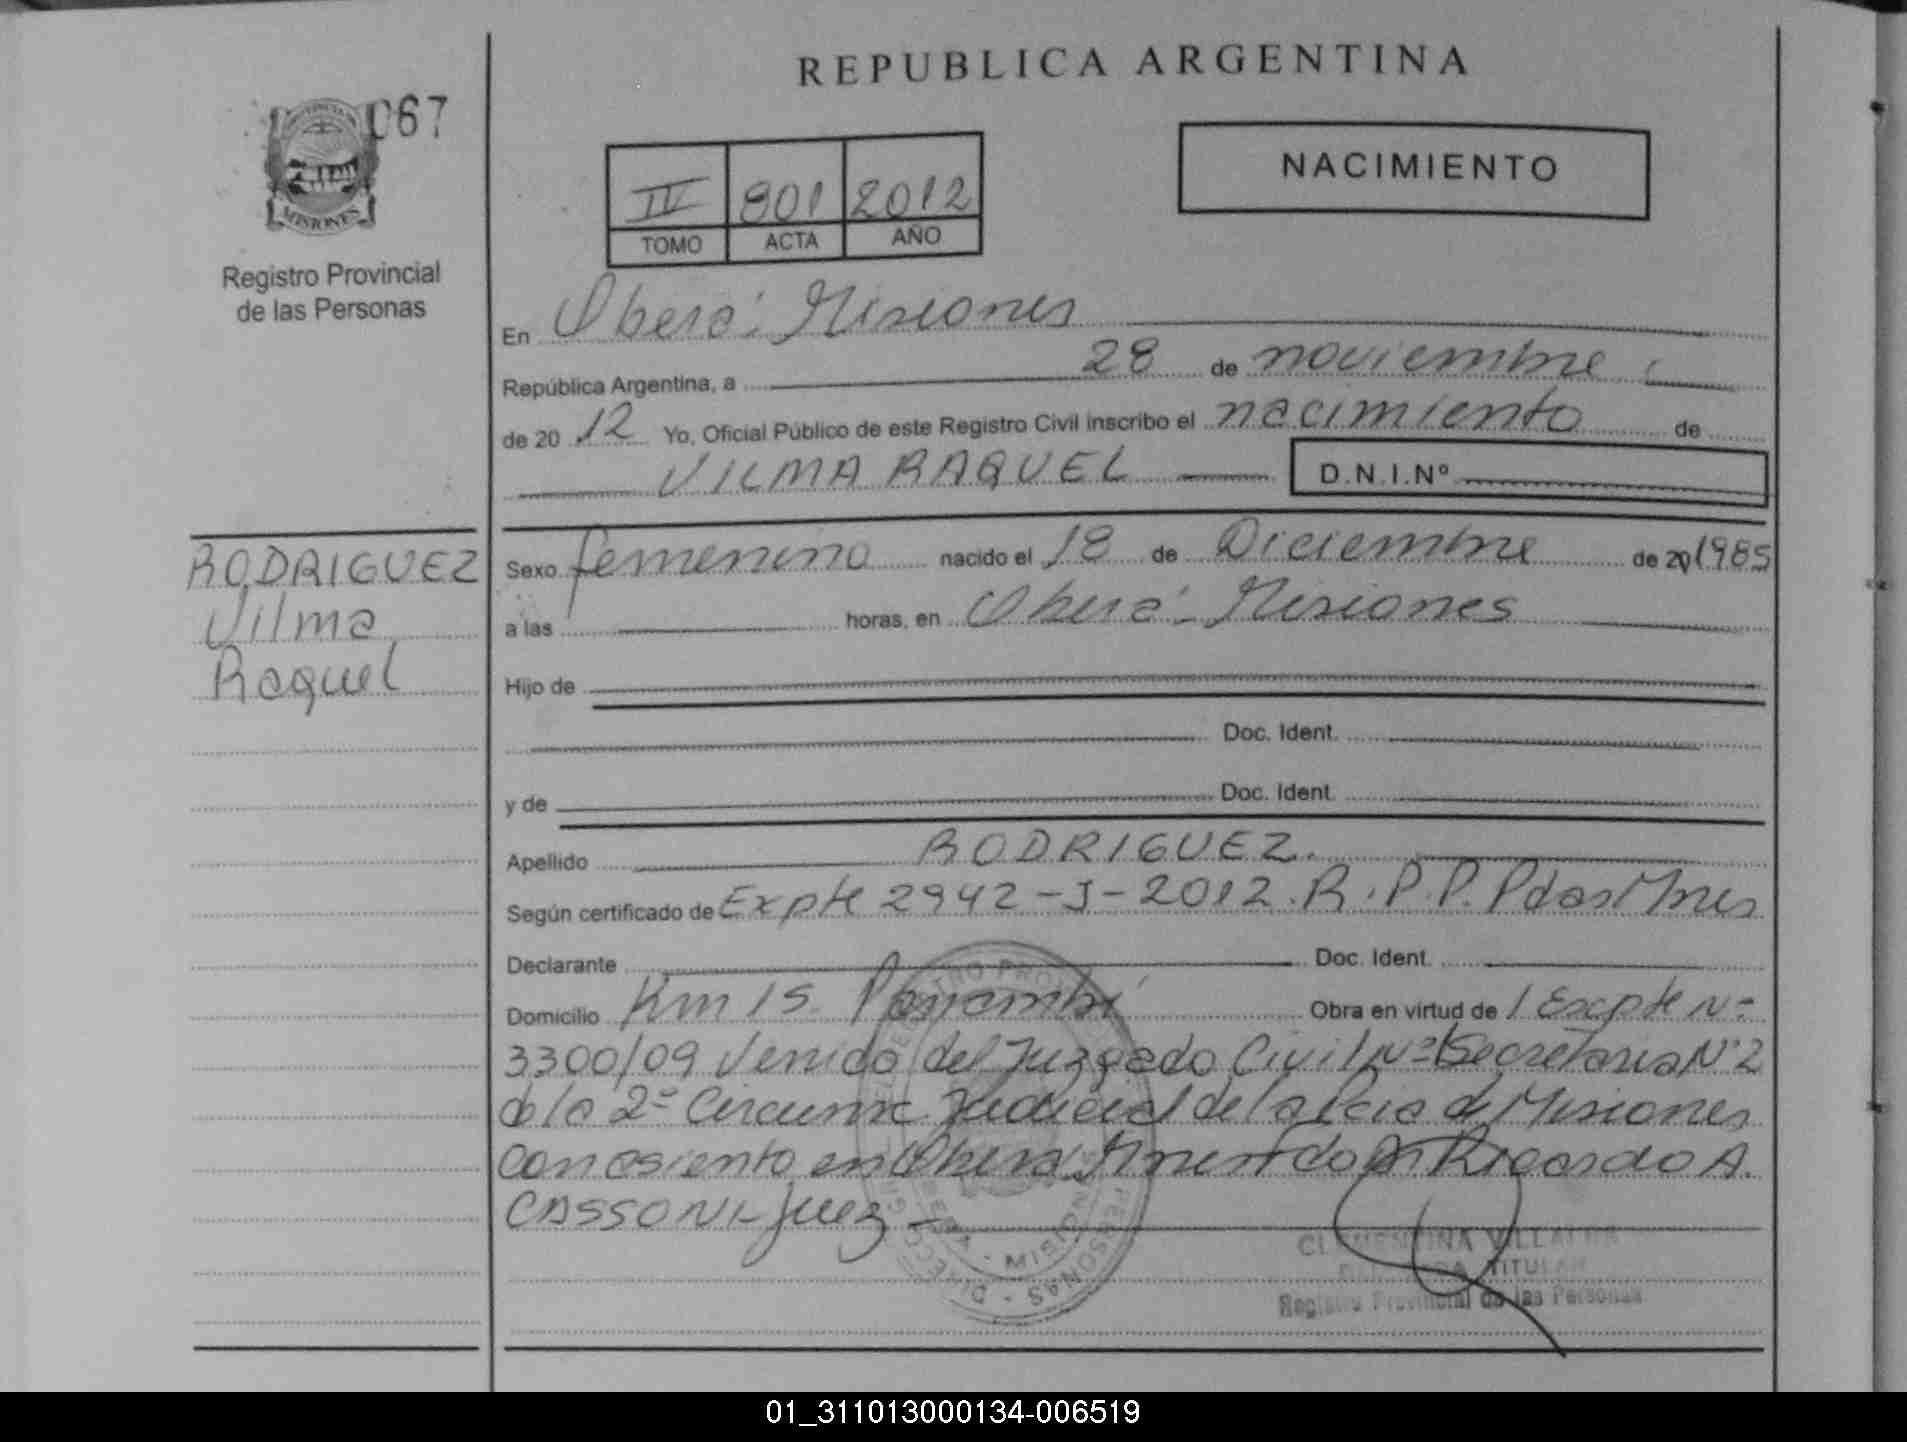 REPUBLICA ARGENTINA
067
PROVINCIA DE
MISIONES
Registro Provincial
de las Personas
NACIMIENTO
IV 801 2012
TOMO ACTA AÑO
En Oberá: Misiones
República Argentina, a 28 de noviembre
de 20 12 Yo, Oficial Público de este Registro Civil inscribo el nacimiento de
VILMA RAQUEL D.N.I.Nº
RODRIGUEZ
Vilma
Raquel
Sexo femenino nacido el 18 de Diciembre de 20 1985
a las horas, en Oberá - Misiones
Hijo de
Doc. Ident.
y de Doc. Ident.
Apellido RODRIGUEZ.
Según certificado de Expte 2942-J-2012. R.P.P. Pdas Mnes
Declarante Doc. Ident.
Domicilio Km 15 Panambí Obra en virtud de / Expte Nº
3300/09 Venido del Juzgado Civil Nº 1 Secretaria Nº 2
de la 2º Circunsc Judicial de la Pcia de Misiones
con asiento en Oberá Mnes fdo Dr Ricardo A.
CASSONI - Juez -
CLEMENTINA VILLALBA
TITULAR
Registro Provincial de las Personas
01_311013000134-006519